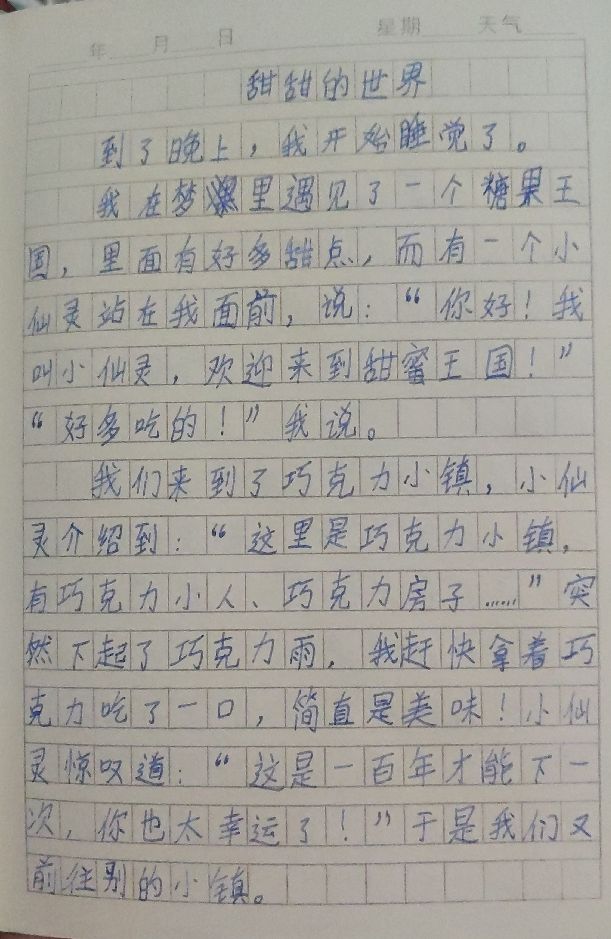 年 月 日 星期 天气
甜甜的世界
到了晚上，我开始睡觉了。
我在梦里遇见了一个糖果王
国，里面有好多甜点，而有一个小
仙灵站在我面前，说：“你好！我
叫小仙灵，欢迎来到甜蜜王国！”
“好多吃的！”我说。
我们来到了巧克力小镇，小仙
灵介绍到：“这里是巧克力小镇，
有巧克力小人、巧克力房子……”突
然下起了巧克力雨，我赶快拿着巧
克力吃了一口，简直是美味！小仙
灵惊叹道：“这是一百年才能下一
次，你也太幸运了！”于是我们又
前往别的小镇。